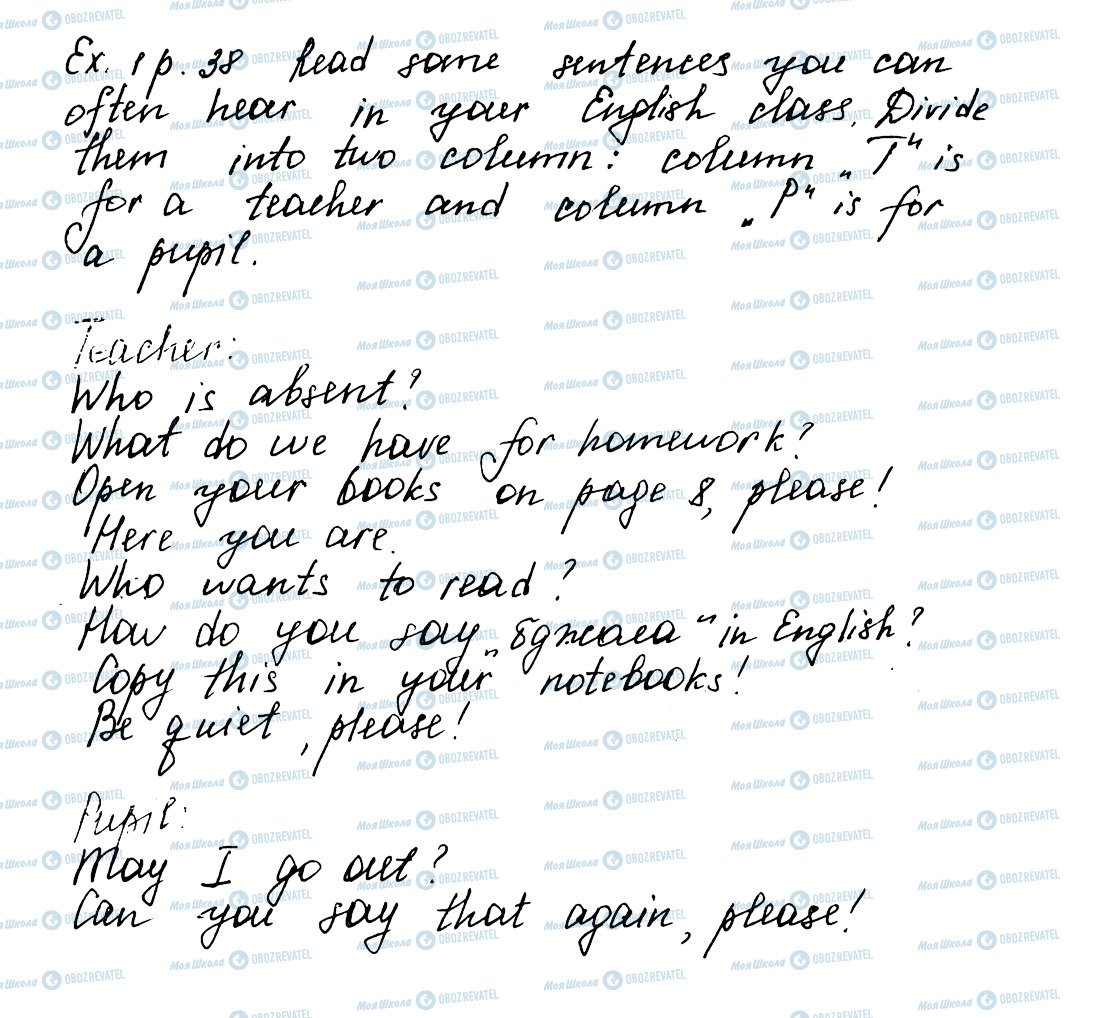 Ex. 1 p. 38 Read some sentences you can
often hear in your English class. Divide
them into two column: column „T" is
for a teacher and column „P" is for
a pupil.
Teacher:
Who is absent?
What do we have for homework?
Open your books on page 8, please!
Here you are.
Who wants to read?
How do you say „бджола" in English?
Copy this in your notebooks!
Be quiet, please!
Pupil:
May I go out?
Can you say that again, please!
МояШкола OBOZREVATEL